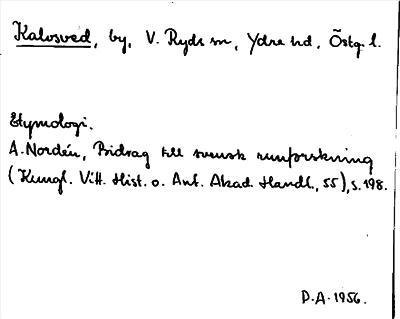 Kalvsved, by, V. Ryds sn, Ydre hd, Östg. l.
Etymologi.
A. Nordén, Bidrag till svensk runforskning
(Kungl. Vitt. Hist. o. Ant. Akad. Handl., 55), s. 198.
D.A. 1956.